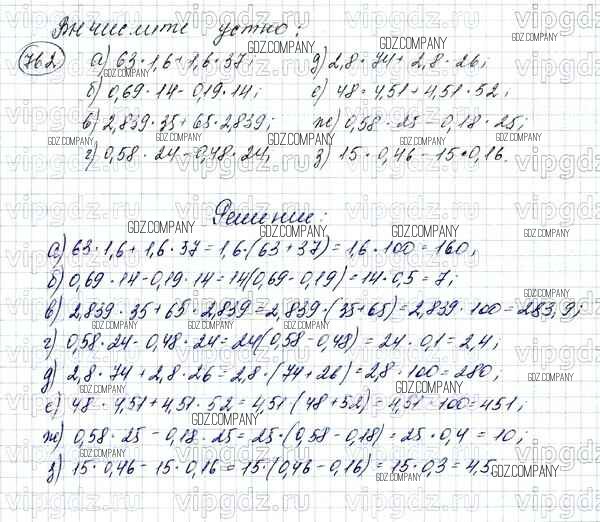 Вычислите устно:
762. а) 63·1,6+1,6·37; д) 2,8·74+2,8·26;
б) 0,69·14-0,19·14; е) 48·4,51+4,51·52;
в) 2,839·35+65·2,839; ж) 0,58·25-0,18·25;
г) 0,58·24-0,48·24; з) 15·0,46-15·0,16.
Решение:
а) 63·1,6+1,6·37=1,6·(63+37)=1,6·100=160;
б) 0,69·14-0,19·14=14(0,69-0,19)=14·0,5=7;
в) 2,839·35+65·2,839=2,839·(35+65)=2,839·100=283,9;
г) 0,58·24-0,48·24=24(0,58-0,48)=24·0,1=2,4;
д) 2,8·74+2,8·26=2,8·(74+26)=2,8·100=280;
е) 48·4,51+4,51·52=4,51(48+52)=4,51·100=451;
ж) 0,58·25-0,18·25=25·(0,58-0,18)=25·0,4=10;
з) 15·0,46-15·0,16=15·(0,46-0,16)=15·0,3=4,5
GDZ.COMPANY
vipgdz.ru